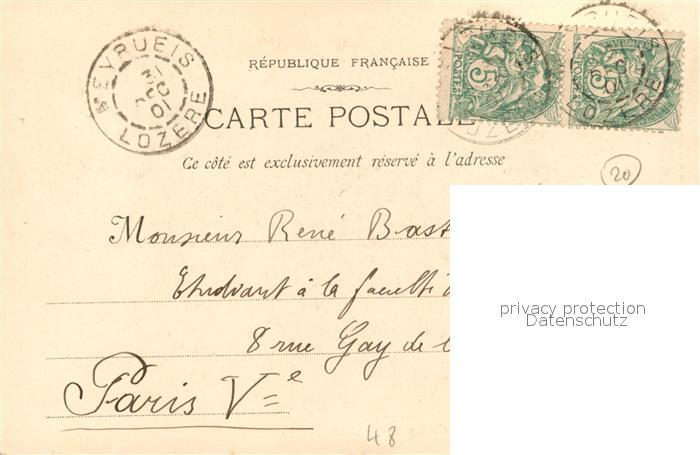 MEYRUEIS
LOZERE
RÉPUBLIQUE FRANÇAISE
POSTES 5c
POSTES 5c
LOZERE
CARTE POSTALE
Ce côté est exclusivement réservé à l'adresse
20
Monsieur René Bast
Etudiant à la faculté
8 rue Gay de
Paris Ve
48
privacy protection
Datenschutz